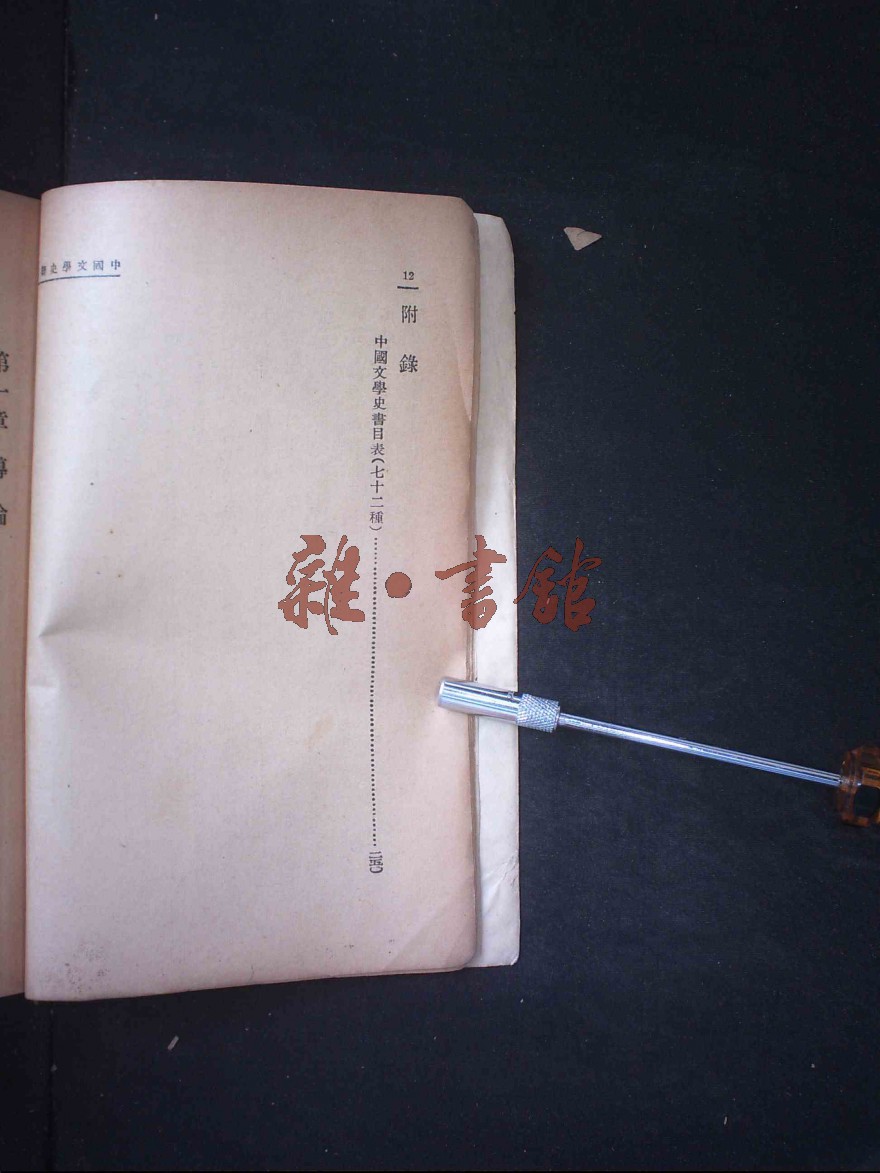 12
附錄
中國文學史書目表(七十二種)
中國文學史
第一章 導論
雜·書館